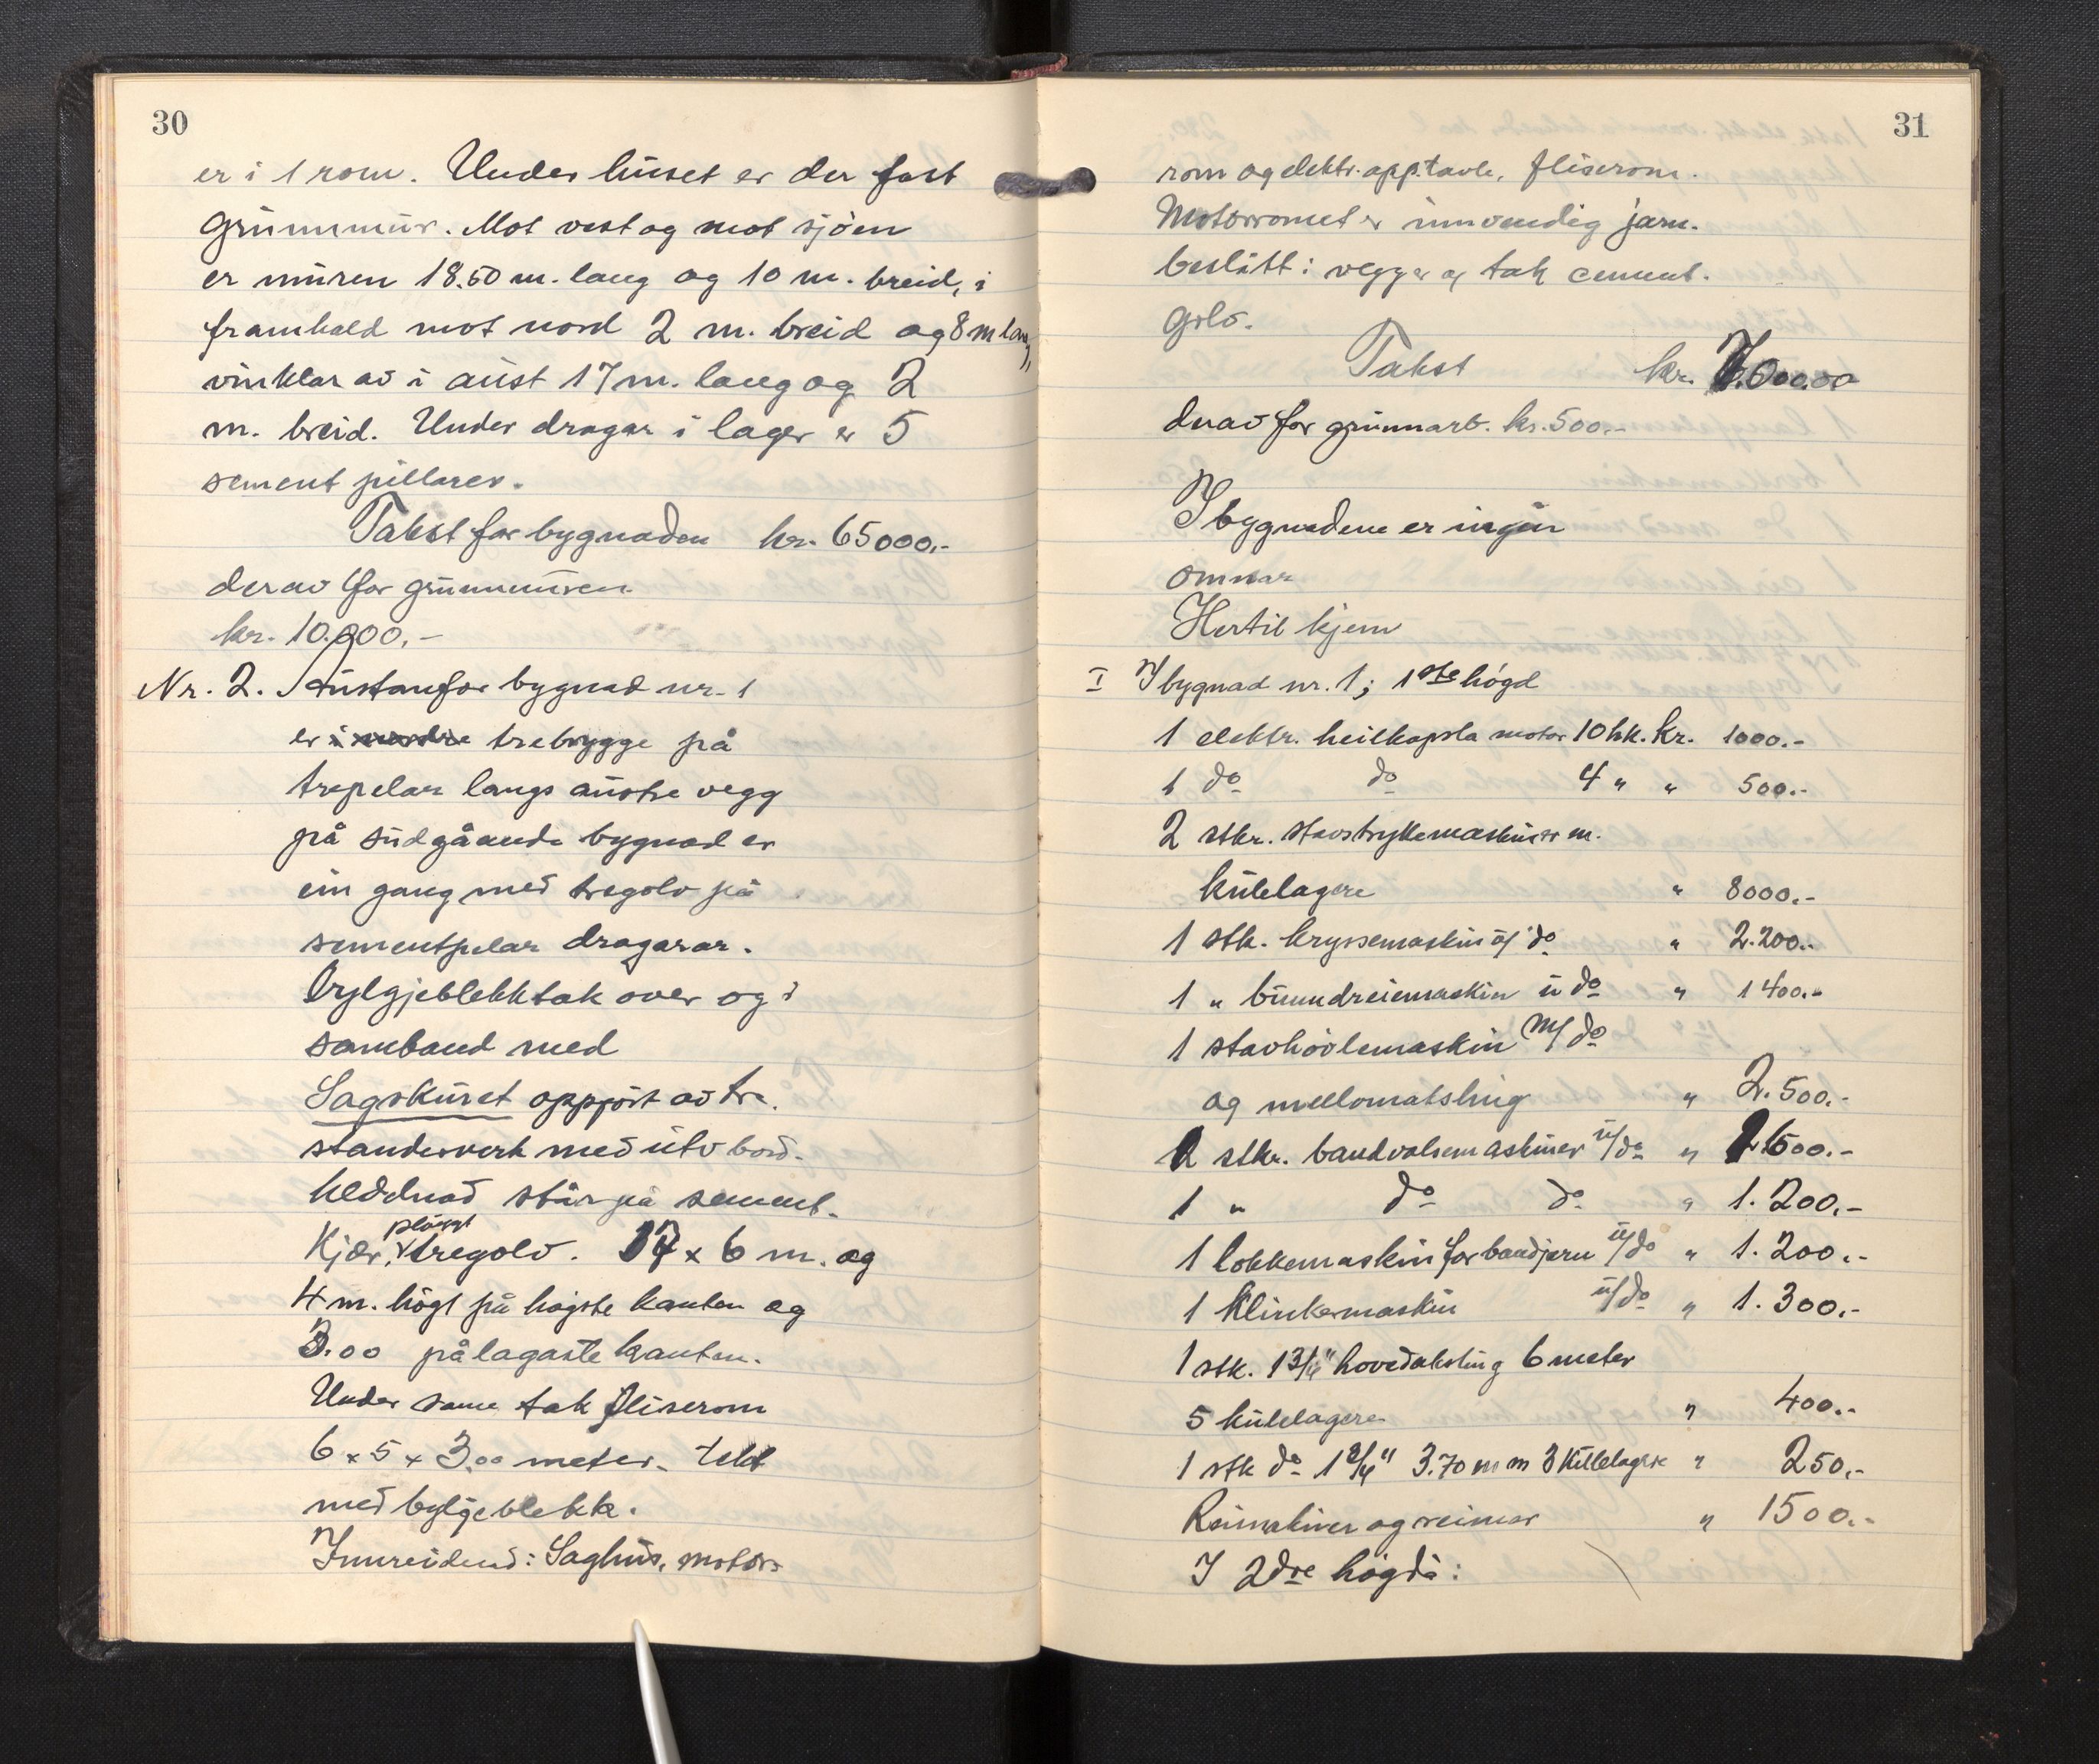 30
er i 1 rom. Under huset er der fast
grunnmur. Mot vest og mot sjøen
er muren 18.50 m. lang og 10 m. breid, i
framhald mot nord 2 m. breid og 8 m lang,
vinklar av i aust 17 m. lang og 2
m. breid. Under dragar i lager er 5
sement pillarer.
Takst for bygnaden kr. 65000.-
derav for grunnmuren
kr. 10.000.-
Nr. 2. Austanfor bygnad nr. 1
er trebrygge på
trepelar langs austre vegg
på sudgåande bygnad er
ein gang med tregolv på
sementpelar dragarar.
Bylgjeblekktak over og i
samband med
Sagskuret oppført av tre.
standerverk med utv bord-
kledднad står på sement-
kjer, pløgt tregolv. 17 x 6 m. og
4 m. høgt på høgste kanten og
3.00 på lagaste kanten.
Under same tak fliserom
6 x 5 x 3.00 meter. tekt
med bylgjeblekk.
Innreidnad: Saghus, motor-
31
rom og elektr. app. tavle, fliserom.
Motorromet er innvendig jarn-
beslått i vegger og tak cement-
golv.
Takst kr. 7.000.00
derav for grunnarb. kr. 500.-
I bygnadene er ingen
omnar
Hertil kjem
I I bygnad nr. 1; 1ste høgd
1 elektr. heilkapsla motor 10 hk. kr. 1000.-
1 do do 4 " " 500.-
2 stkr. stavstrykemaskiner m.
kulelagere " 8000.-
1 stk. kryssemaskin u/ do " 2.200.-
1 " bunndreiemaskin u do " 1400.-
1 stavhøvlemaskin m/ do
og mellomaksling " 2.500.-
2 stkr. bandvalsemaskiner u/do " 2.600.-
1 " do do " 1.200.-
1 lokkemaskin for bandjern u/do " 1.200.-
1 klinkemaskin u/do " 1.300.-
1 stk. 1 3/4" hovedaksling 6 meter
5 kulelagere " 400.-
1 stk do 1 3/4" 3.70 m m 3 kulelagere " 250.-
Reimskiver og reimar " 1500.-
I 2dre høgda: